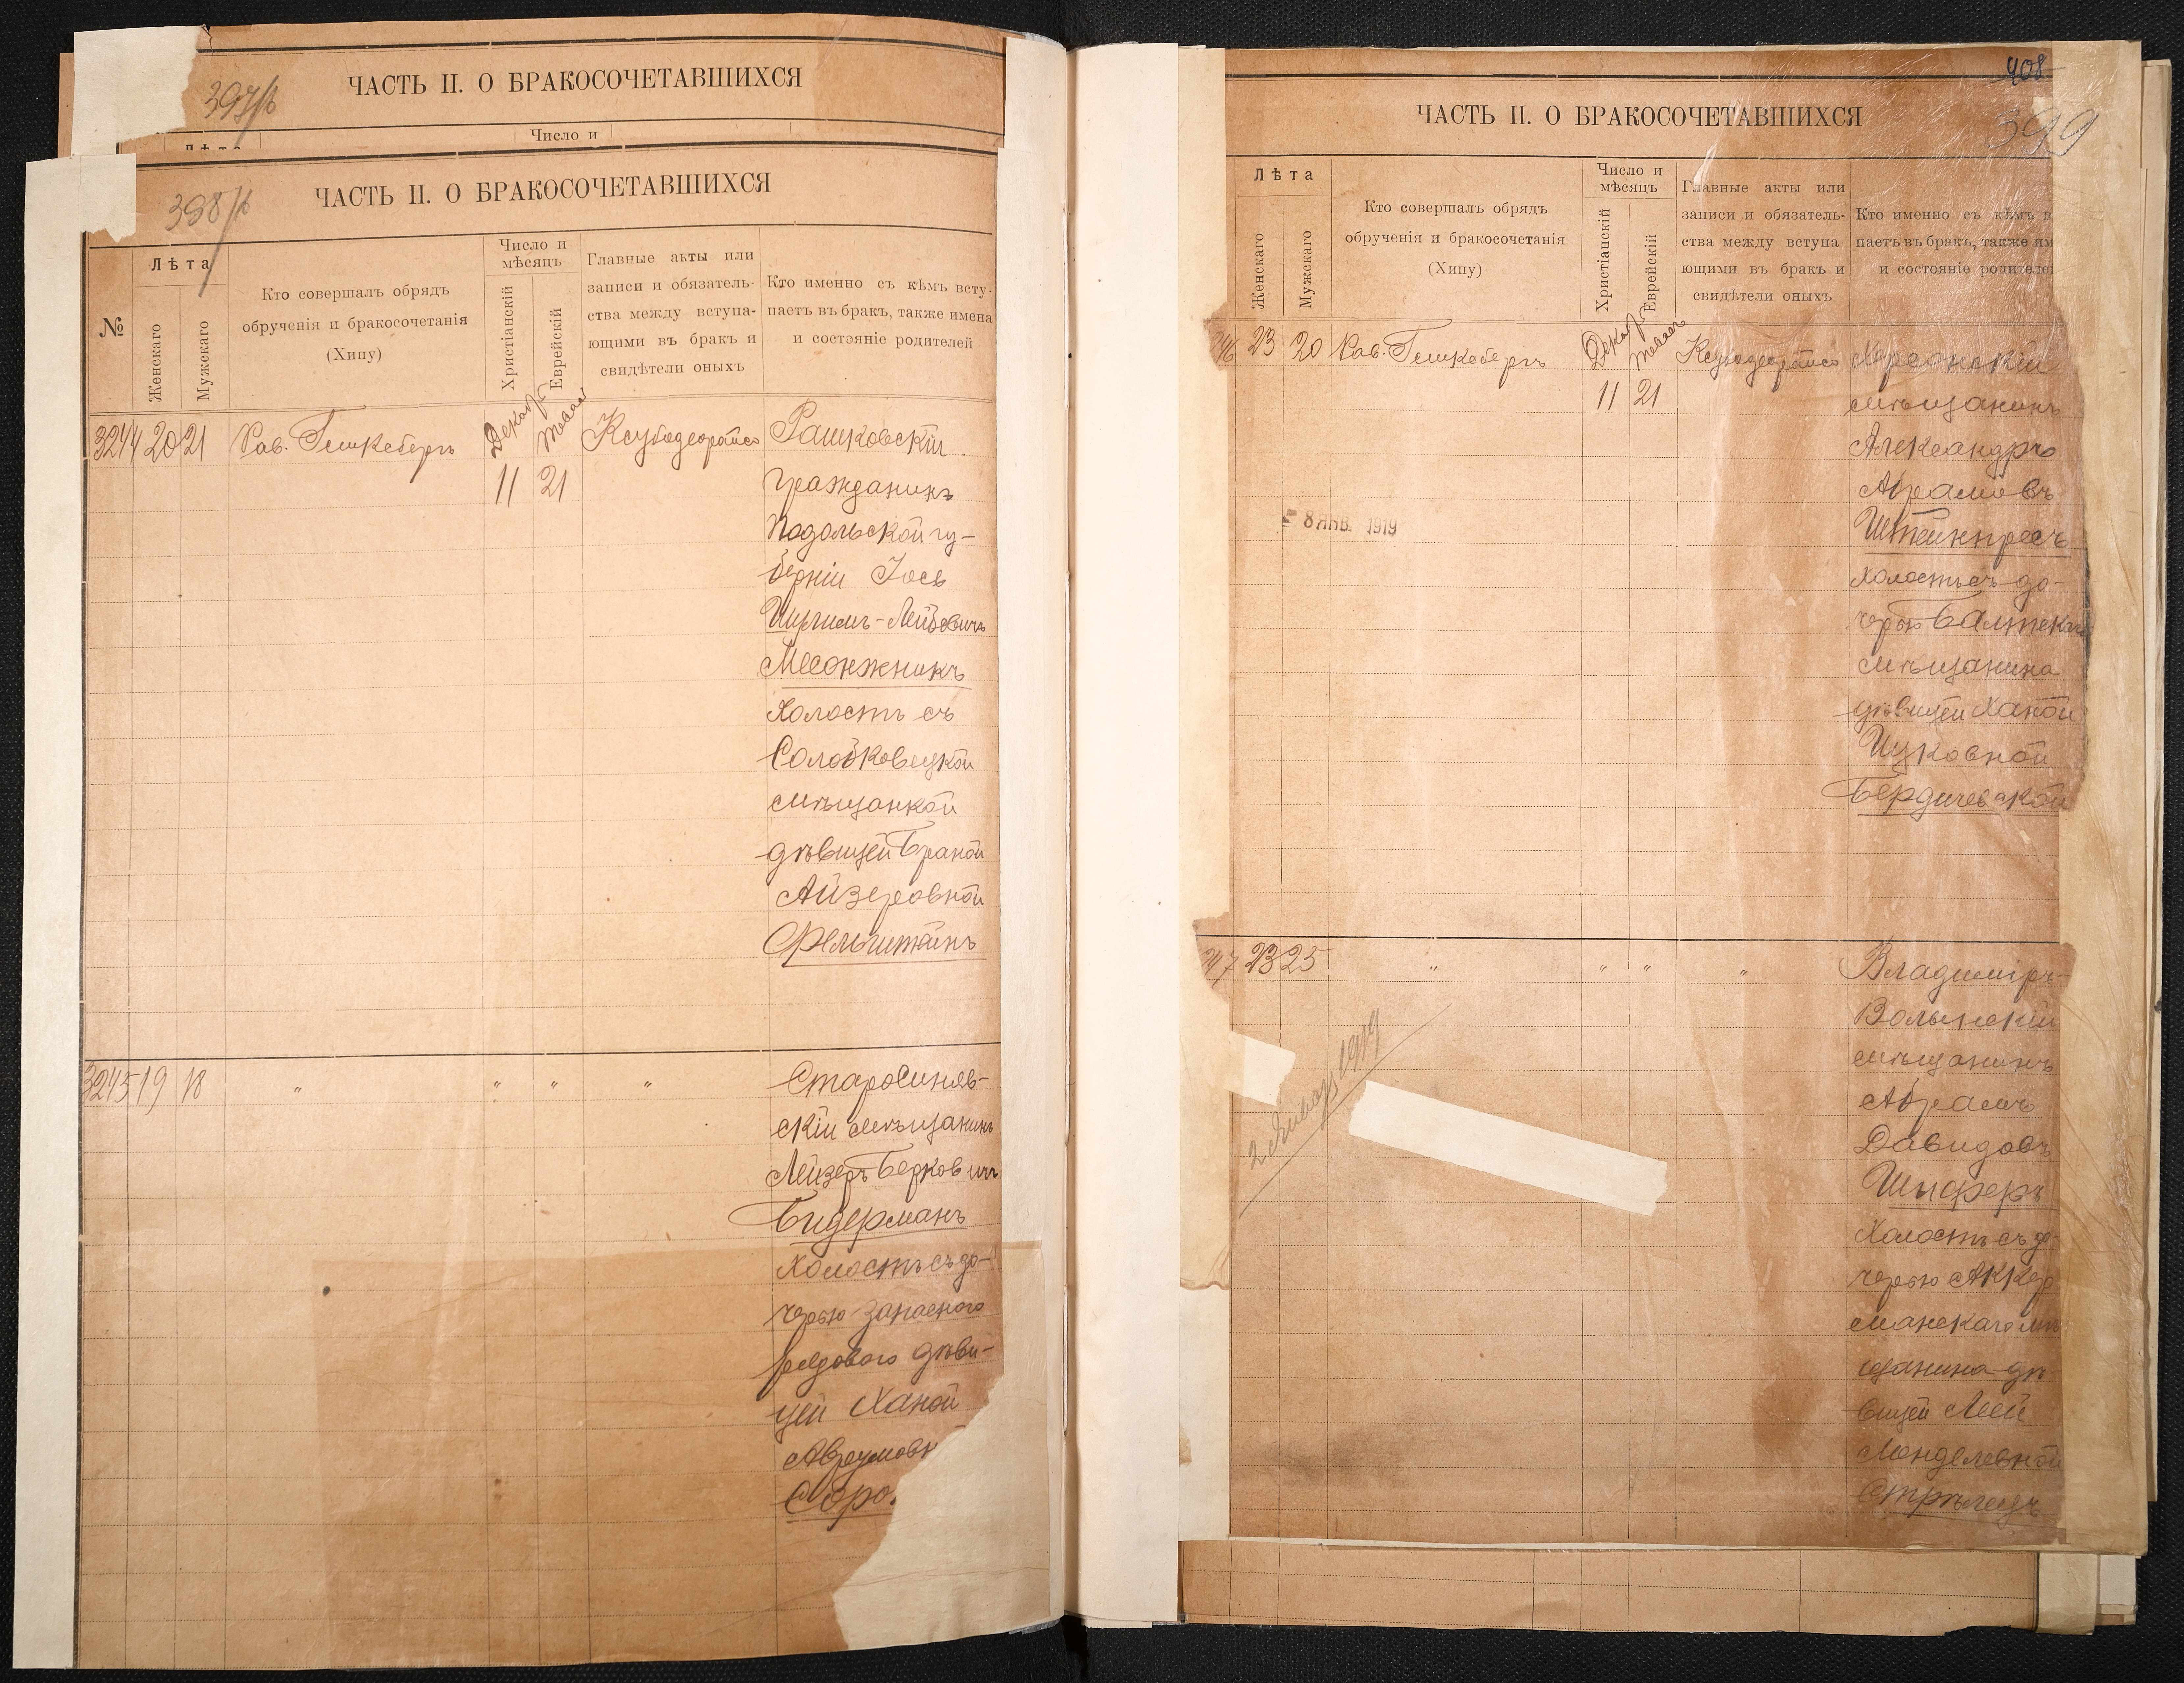 397/б
ЧАСТЬ II. О БРАКОСОЧЕТАВШИХСЯ
Число и
Лѣта
398/б
ЧАСТЬ II. О БРАКОСОЧЕТАВШИХСЯ
№
Лѣта
Женскаго
Мужскаго
Кто совершалъ обрядъ
обрученія и бракосочетанія
(Хипу)
Число и
мѣсяцъ
Христіанскій
Еврейскій
Главные акты или
записи и обязатель-
ства между вступа-
ющими въ бракъ и
свидѣтели оныхъ
Кто именно съ кѣмъ всту-
паетъ въ бракъ, также имена
и состояніе родителей
3244 20 21 Рав. Гешкебергъ Декабр 11 21 Рашковскій
гражданинъ
Подольской гу-
берніи Іось
-Лейбовичъ
Месонжникъ
холостъ съ
Солобковецкой
мѣщанкой
дѣвицей Браной
Айзеровной
Фельштейнъ
3245 19 18 " " " " Старосиняв-
скій мѣщанинъ
Лейзеръ Берковичъ
Бидерманъ
холостъ съ до-
черью запасного
рядового дѣви-
цей Ханой
Аврумовн
Соро
408
ЧАСТЬ II. О БРАКОСОЧЕТАВШИХСЯ
399
Лѣта
Женскаго
Мужскаго
Кто совершалъ обрядъ
обрученія и бракосочетанія
(Хипу)
Число и
мѣсяцъ
Христіанскій
Еврейскій
Главные акты или
записи и обязатель-
ства между вступа
ющими въ бракъ и
свидѣтели оныхъ
Кто именно съ кѣмъ в
паетъ въ бракъ, также им
и состояніе родителей
246 23 20 Рав. Гешкебергъ Декабр 11 21 Херсонскій
мѣщанинъ
Александръ
Абрамовъ
Штейнпресъ
холостъ съ до-
черью Балтск
мѣщанина
дѣвицей Ханой
Ицковной
Бердичевской
8 ЯНВ. 1919
247 23 25 " " " " Владиміръ-
Волынскій
мѣщанинъ
Абрамъ
Давидовъ
Шиферъ
холостъ съ до
черью Аккер
манскаго мѣ
щанина дѣ
вицей Леей
Менделевной
Стрѣлецъ
2 Января 1919